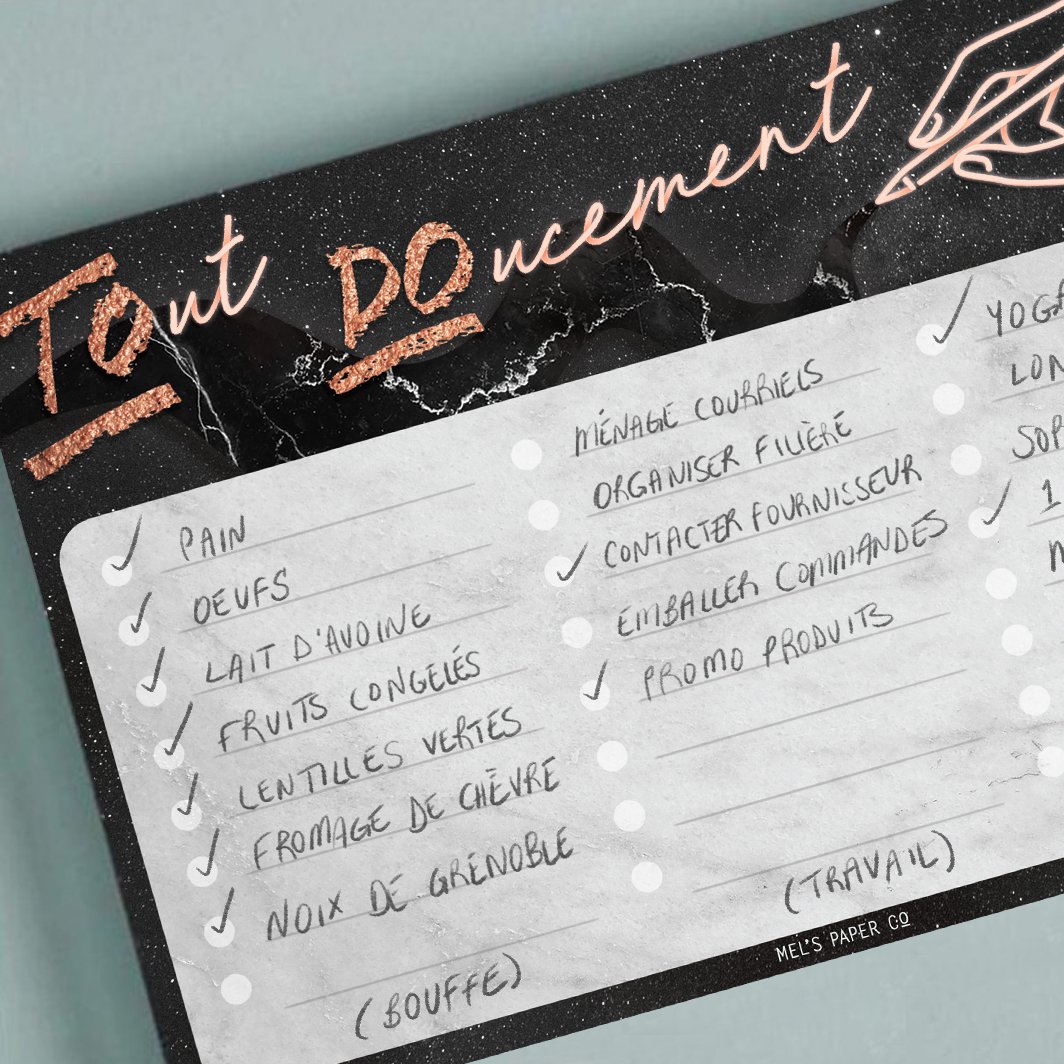 Tout DOucement
✓ PAIN
✓ OEUFS
✓ LAIT D'AVOINE
✓ FRUITS CONGELÉS
✓ LENTILLES VERTES
✓ FROMAGE DE CHÈVRE
✓ NOIX DE GRENOBLE
(BOUFFE)
MÉNAGE COURRIELS
ORGANISER FILIÈRE
✓ CONTACTER FOURNISSEUR
EMBALLER COMMANDES
✓ PROMO PRODUITS
(TRAVAIL)
✓ YOGA
LON
SOP
✓ 1
MEL'S PAPER CO